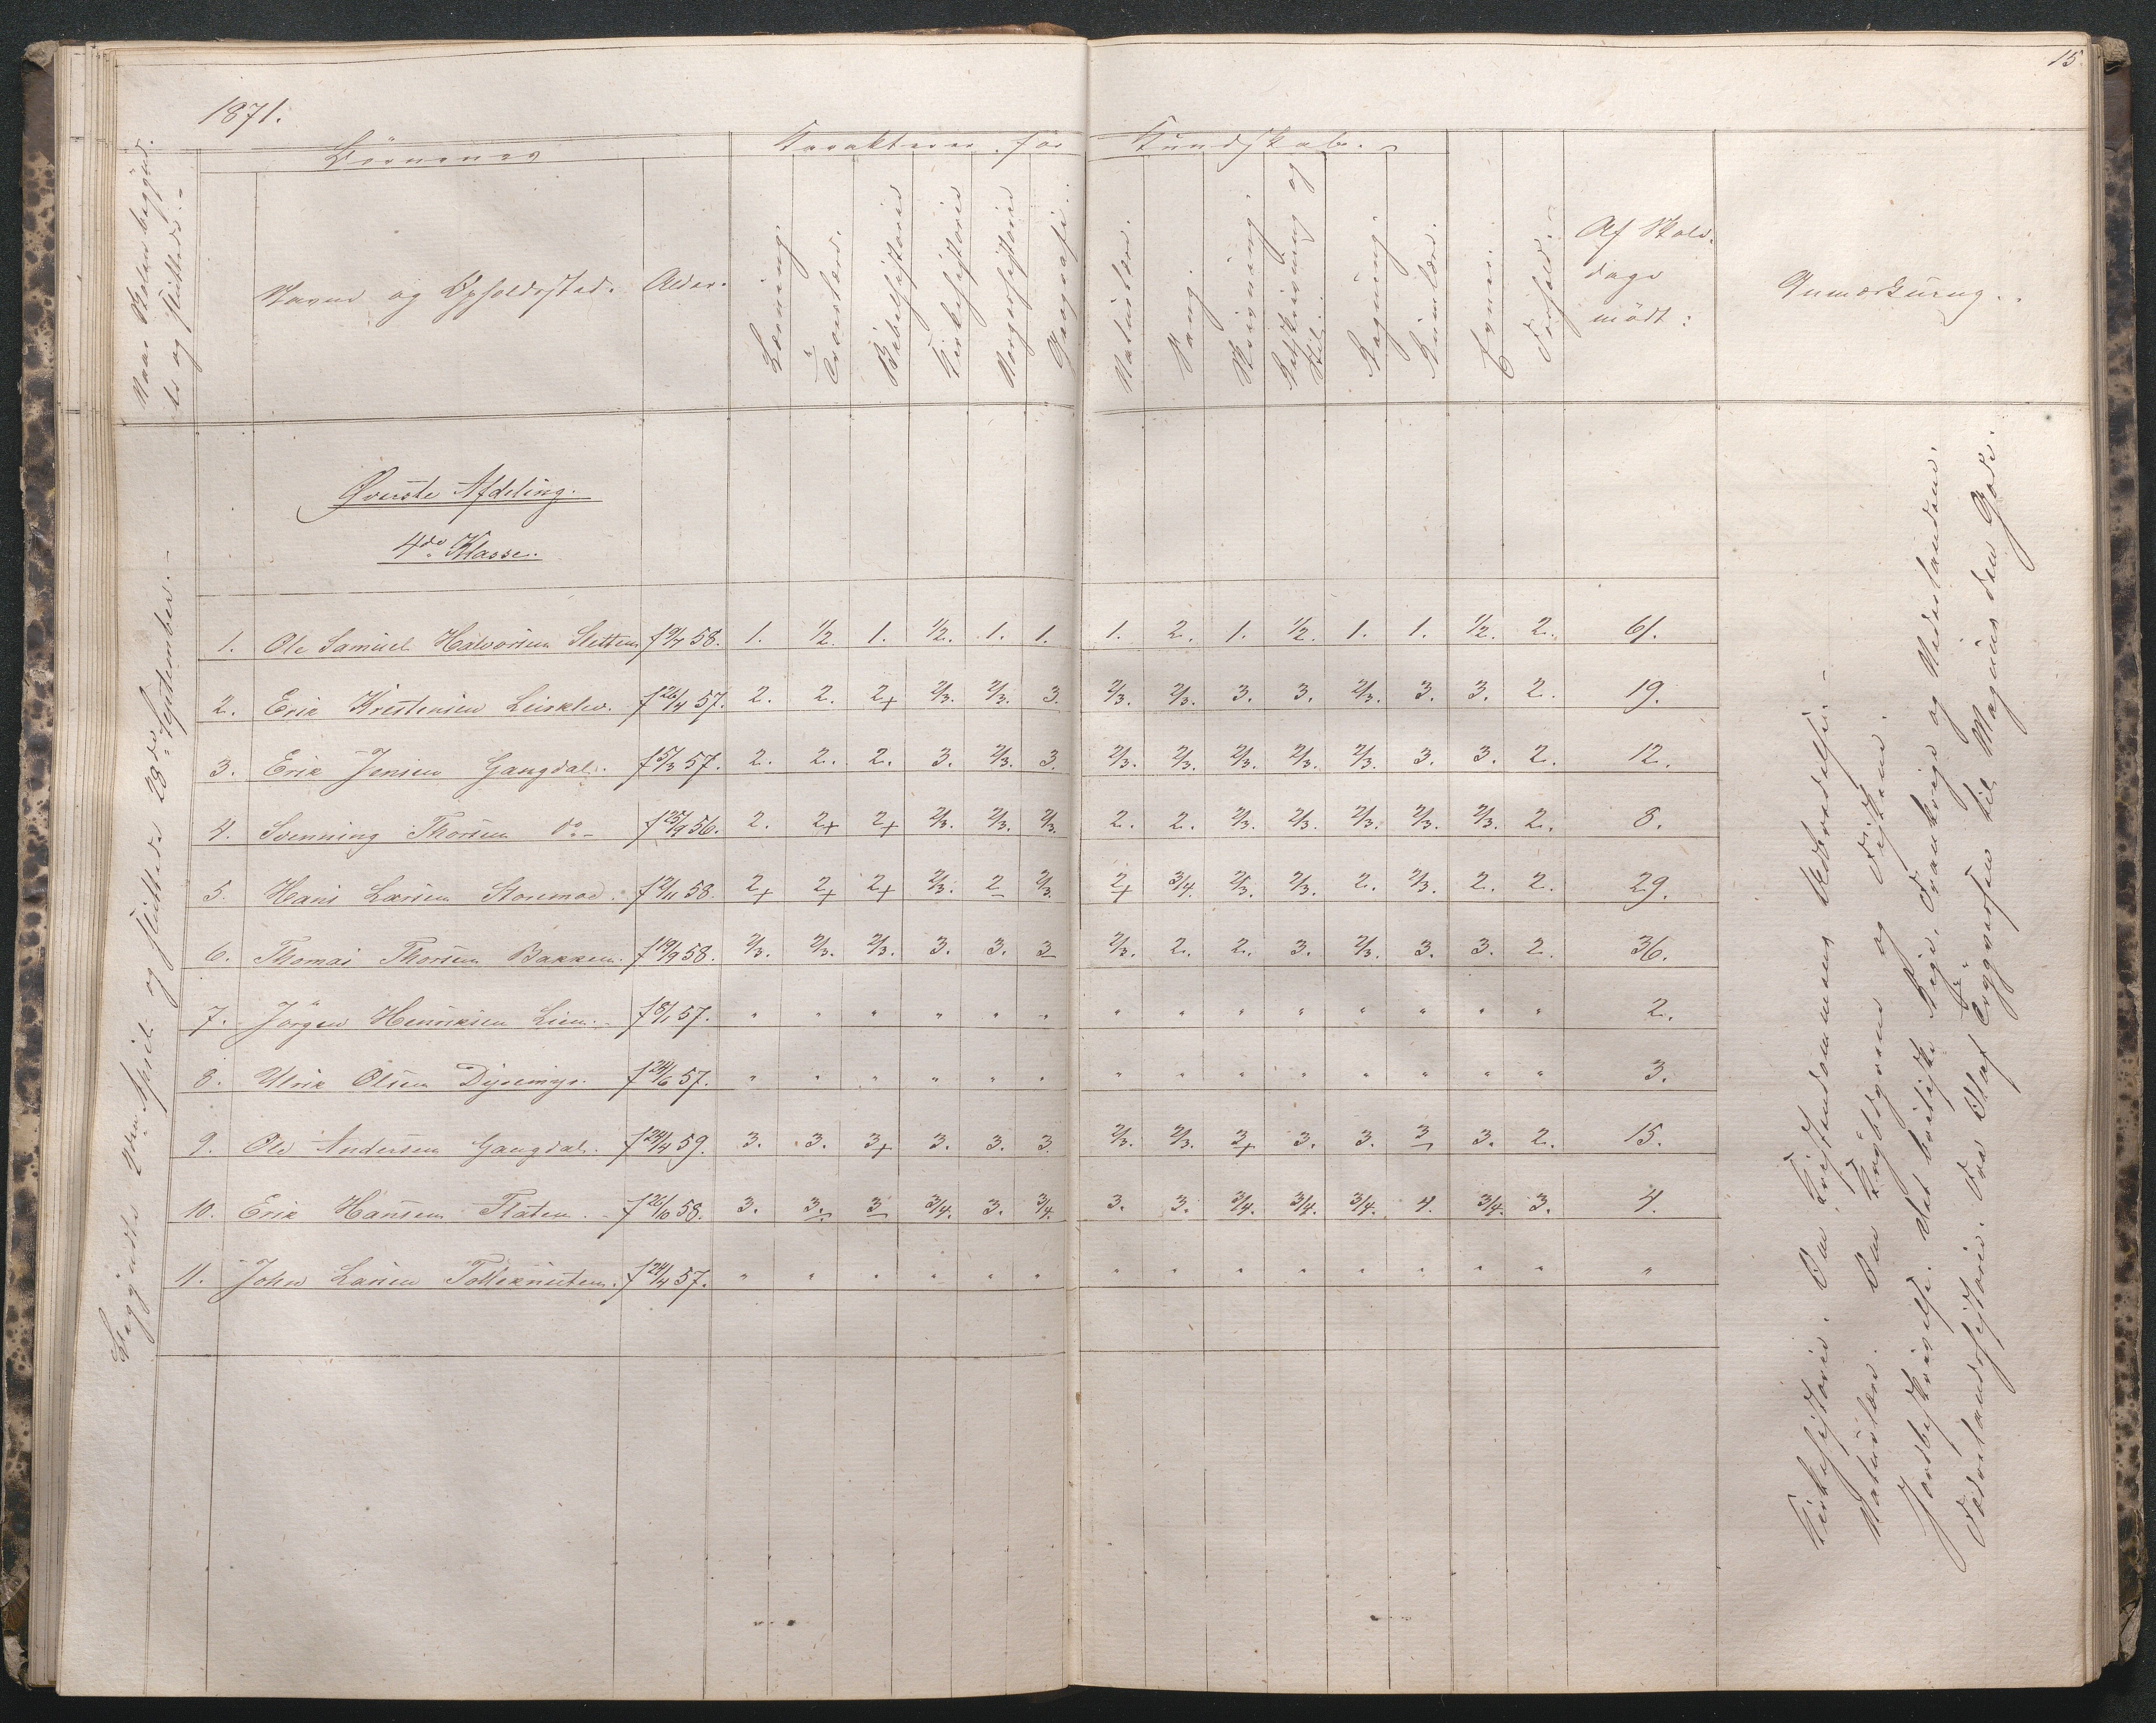 15
1871.
Naar Skolen begyndtes og sluttedes.
Börnenes
Karakterer for Kundskab.
Navne og Opholdssted. Alder. Læsning. Troeslære. Bibelhistorie Kirkehistorie Norgeshistorie Geografi. Naturlære. Sang. Skrivning. Retskrivning og Stil. Regning. Evner. Forhold. Af Skoledage mödt: Anmærkning.
Överste Afdeling.
4de Klasse.
1. Ole Samuel Halvorsen Sletten f 9/7 58. 1. 1/2. 1. 1/2. 1. 1. 1. 2. 1. 1/2. 1. 1. 1/2. 2. 61.
2. Erik Kristensen f 26/4 57. 2. 2. 2+ 2/3. 2/3. 3. 2/3. 2/3. 3. 3. 2/3. 3. 3. 2. 19.
3. Erik Jensen Gangdal. f 5/3 57. 2. 2. 2. 3. 2/3. 3. 2/3. 2/3. 2/3. 2/3. 2/3. 3. 3. 2. 12.
4. Svenning Thorsen do f 25/9 56. 2. 2+ 2+ 2/3. 2/3. 2/3. 2. 2. 2/3. 2/3. 2/3. 2/3. 2/3. 2. 8.
5. Hans Larsen Storemoe. f 2/11 58. 2+ 2+ 2+ 2/3. 2 2/3. 2+ 3/4. 2/3. 2/3. 2. 2/3. 2. 2. 29.
6. Thomas Thorsen Bakken. f 19/9 58. 2/3. 2/3. 2/3. 3. 3. 3 2/3. 2. 2. 3. 2/3. 3. 3. 2. 36.
7. Jörgen Henriksen Lien. f 8/1 57. " " " " " " " " " " " " " " 2.
8. Ulrik Olsen f 24/6 57. " " " " " " " " " " " " " " 3.
9. Ole Andersen Gangdal. f 24/4 59. 3. 3. 3+ 3. 3. 3. 2/3. 2/3. 3+ 3. 3. 3 3. 2. 15.
10. Erik Hansen Flaten. f 26/10 58. 3. 3. 3 3/4. 3. 3/4. 3. 3. 3/4. 3/4. 3/4. 4. 3/4. 3. 4.
11. John Larsen f 24/4 57. " " " " " " " " " " " " " " "
Begyndte den April og sluttede 28de September.
Kirkehistorie. Om Kristendommens Udbredelse.
Naturlære. Om og
Jordbeskrivelse. det britiske Rige, Frankrige og Nederlandene.
Fædrelandshistorie. Fra Olaf til Magnus den Gode.